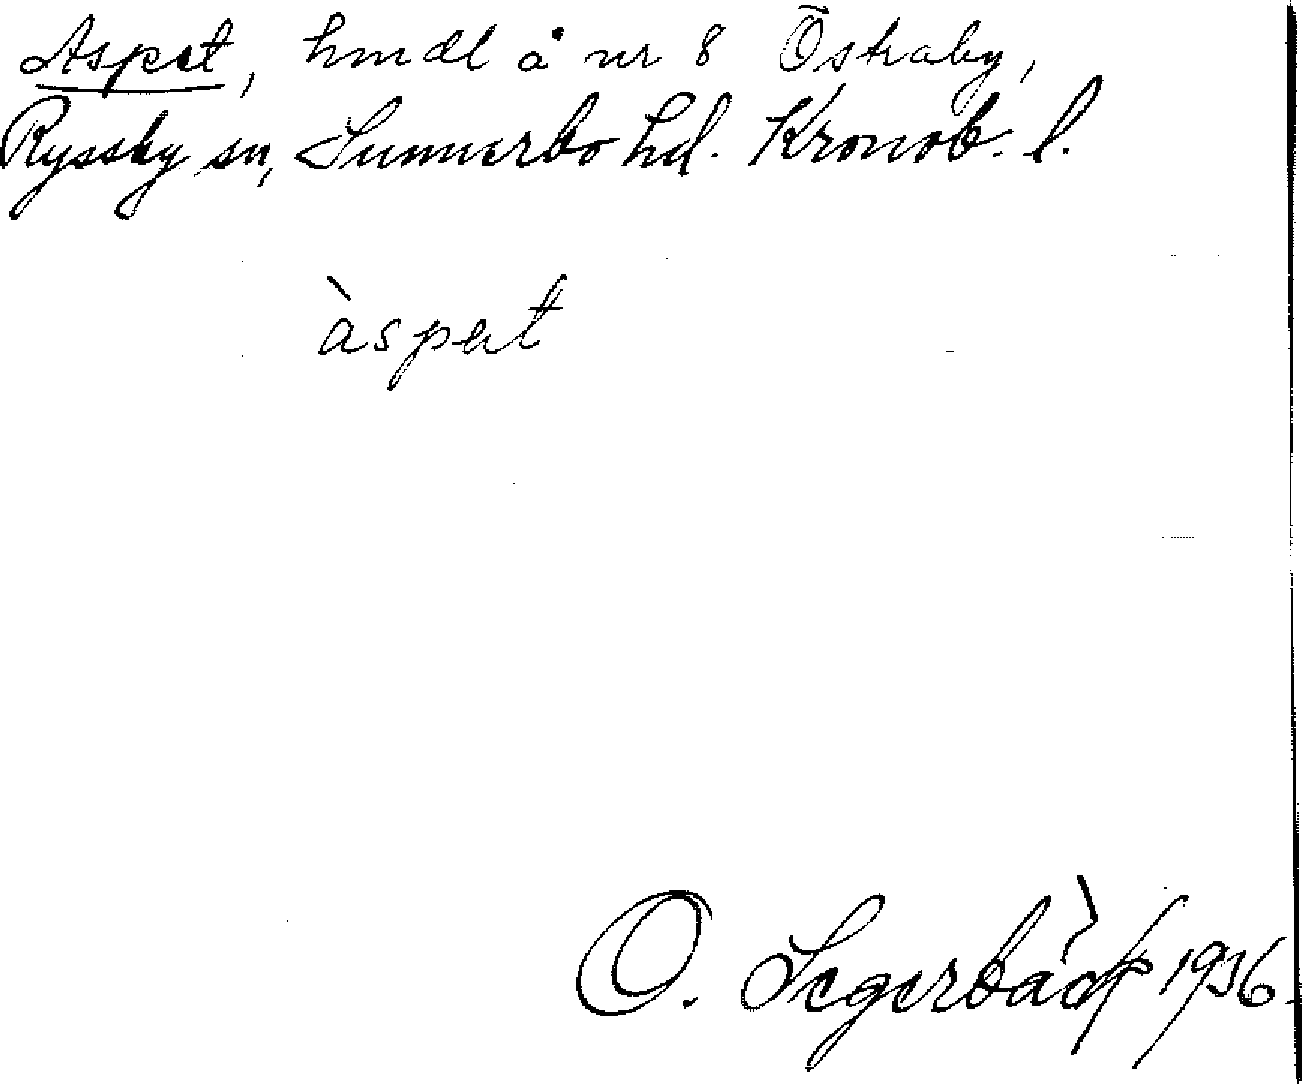 Aspet, hmdl å nr 8 Östraby,
Ryssby sn, Sunnerbo hd. Kronob. l.
àspet
O. Segerbäck 1936.